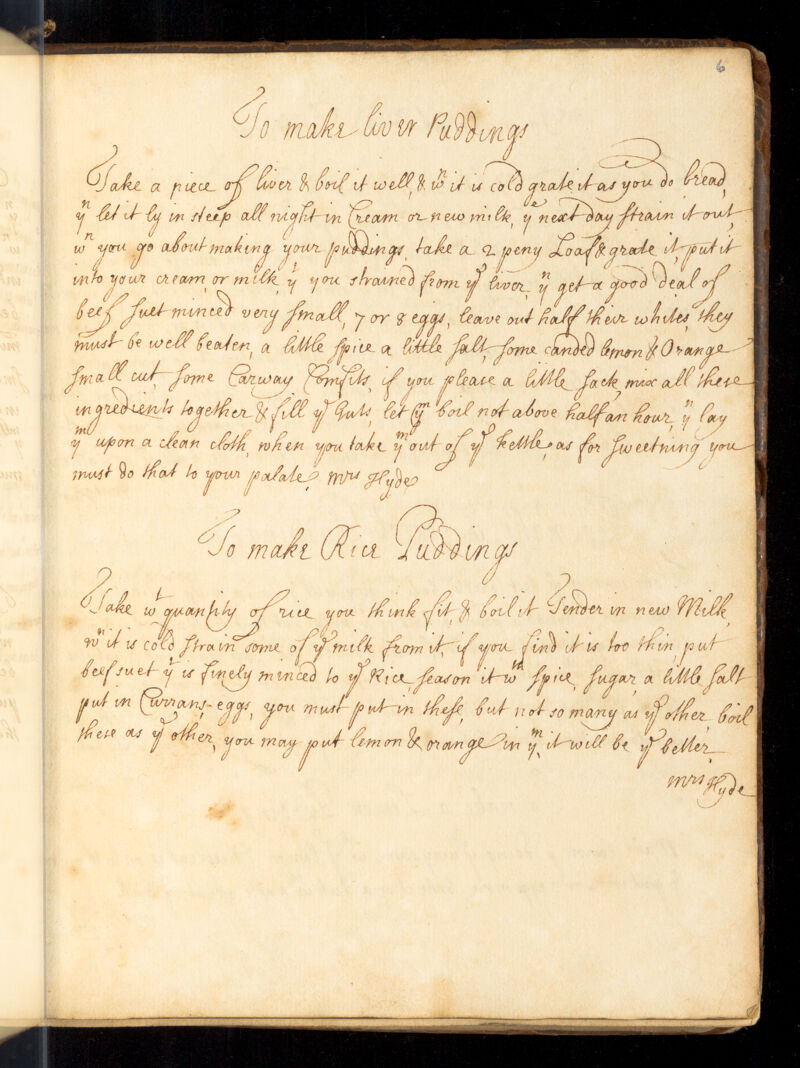 6
To make liver Puddings
Take a piece of liver & boil it well, & wn it is cold grate it as you do bread,
yn let it ly in steep all night in Cream or new milk, ye next day strain it out,
wn you go about making your puddings, take a 2 peny Loaf & grate it, put it
into your cream, or milk, yt you strained from ye liver, yn get a good deal of
beef suet minced very small, 7 or 8 eggs, leave out half their whites, they
must be well beaten, a little spice a little salt, some canded lemon & Orange
small cut, some Carway Comfits, if you please a little sack, mix all these
ingredients together & fill ye Guts, let ym boil not above half an hour, yn lay
ym upon a clean cloth, when you take ym out of ye kettle, as for sweetning you
must do that to your palate, Mrs Hyde
To make Rice Puddings
Take wt quantity of rice you think fit, & boil it Tender in new Milk,
wn it is cold strain some of ye milk from it, if you find it is too thin put
beef suet yt is finely minced to ye Rice, season it wth spice, sugar, a little salt
put in Currans, eggs, you must put in these, but not so many as ye other, boil
these as ye other, you may put lemon & orange in ym, it will be ye better
Mrs Hyde